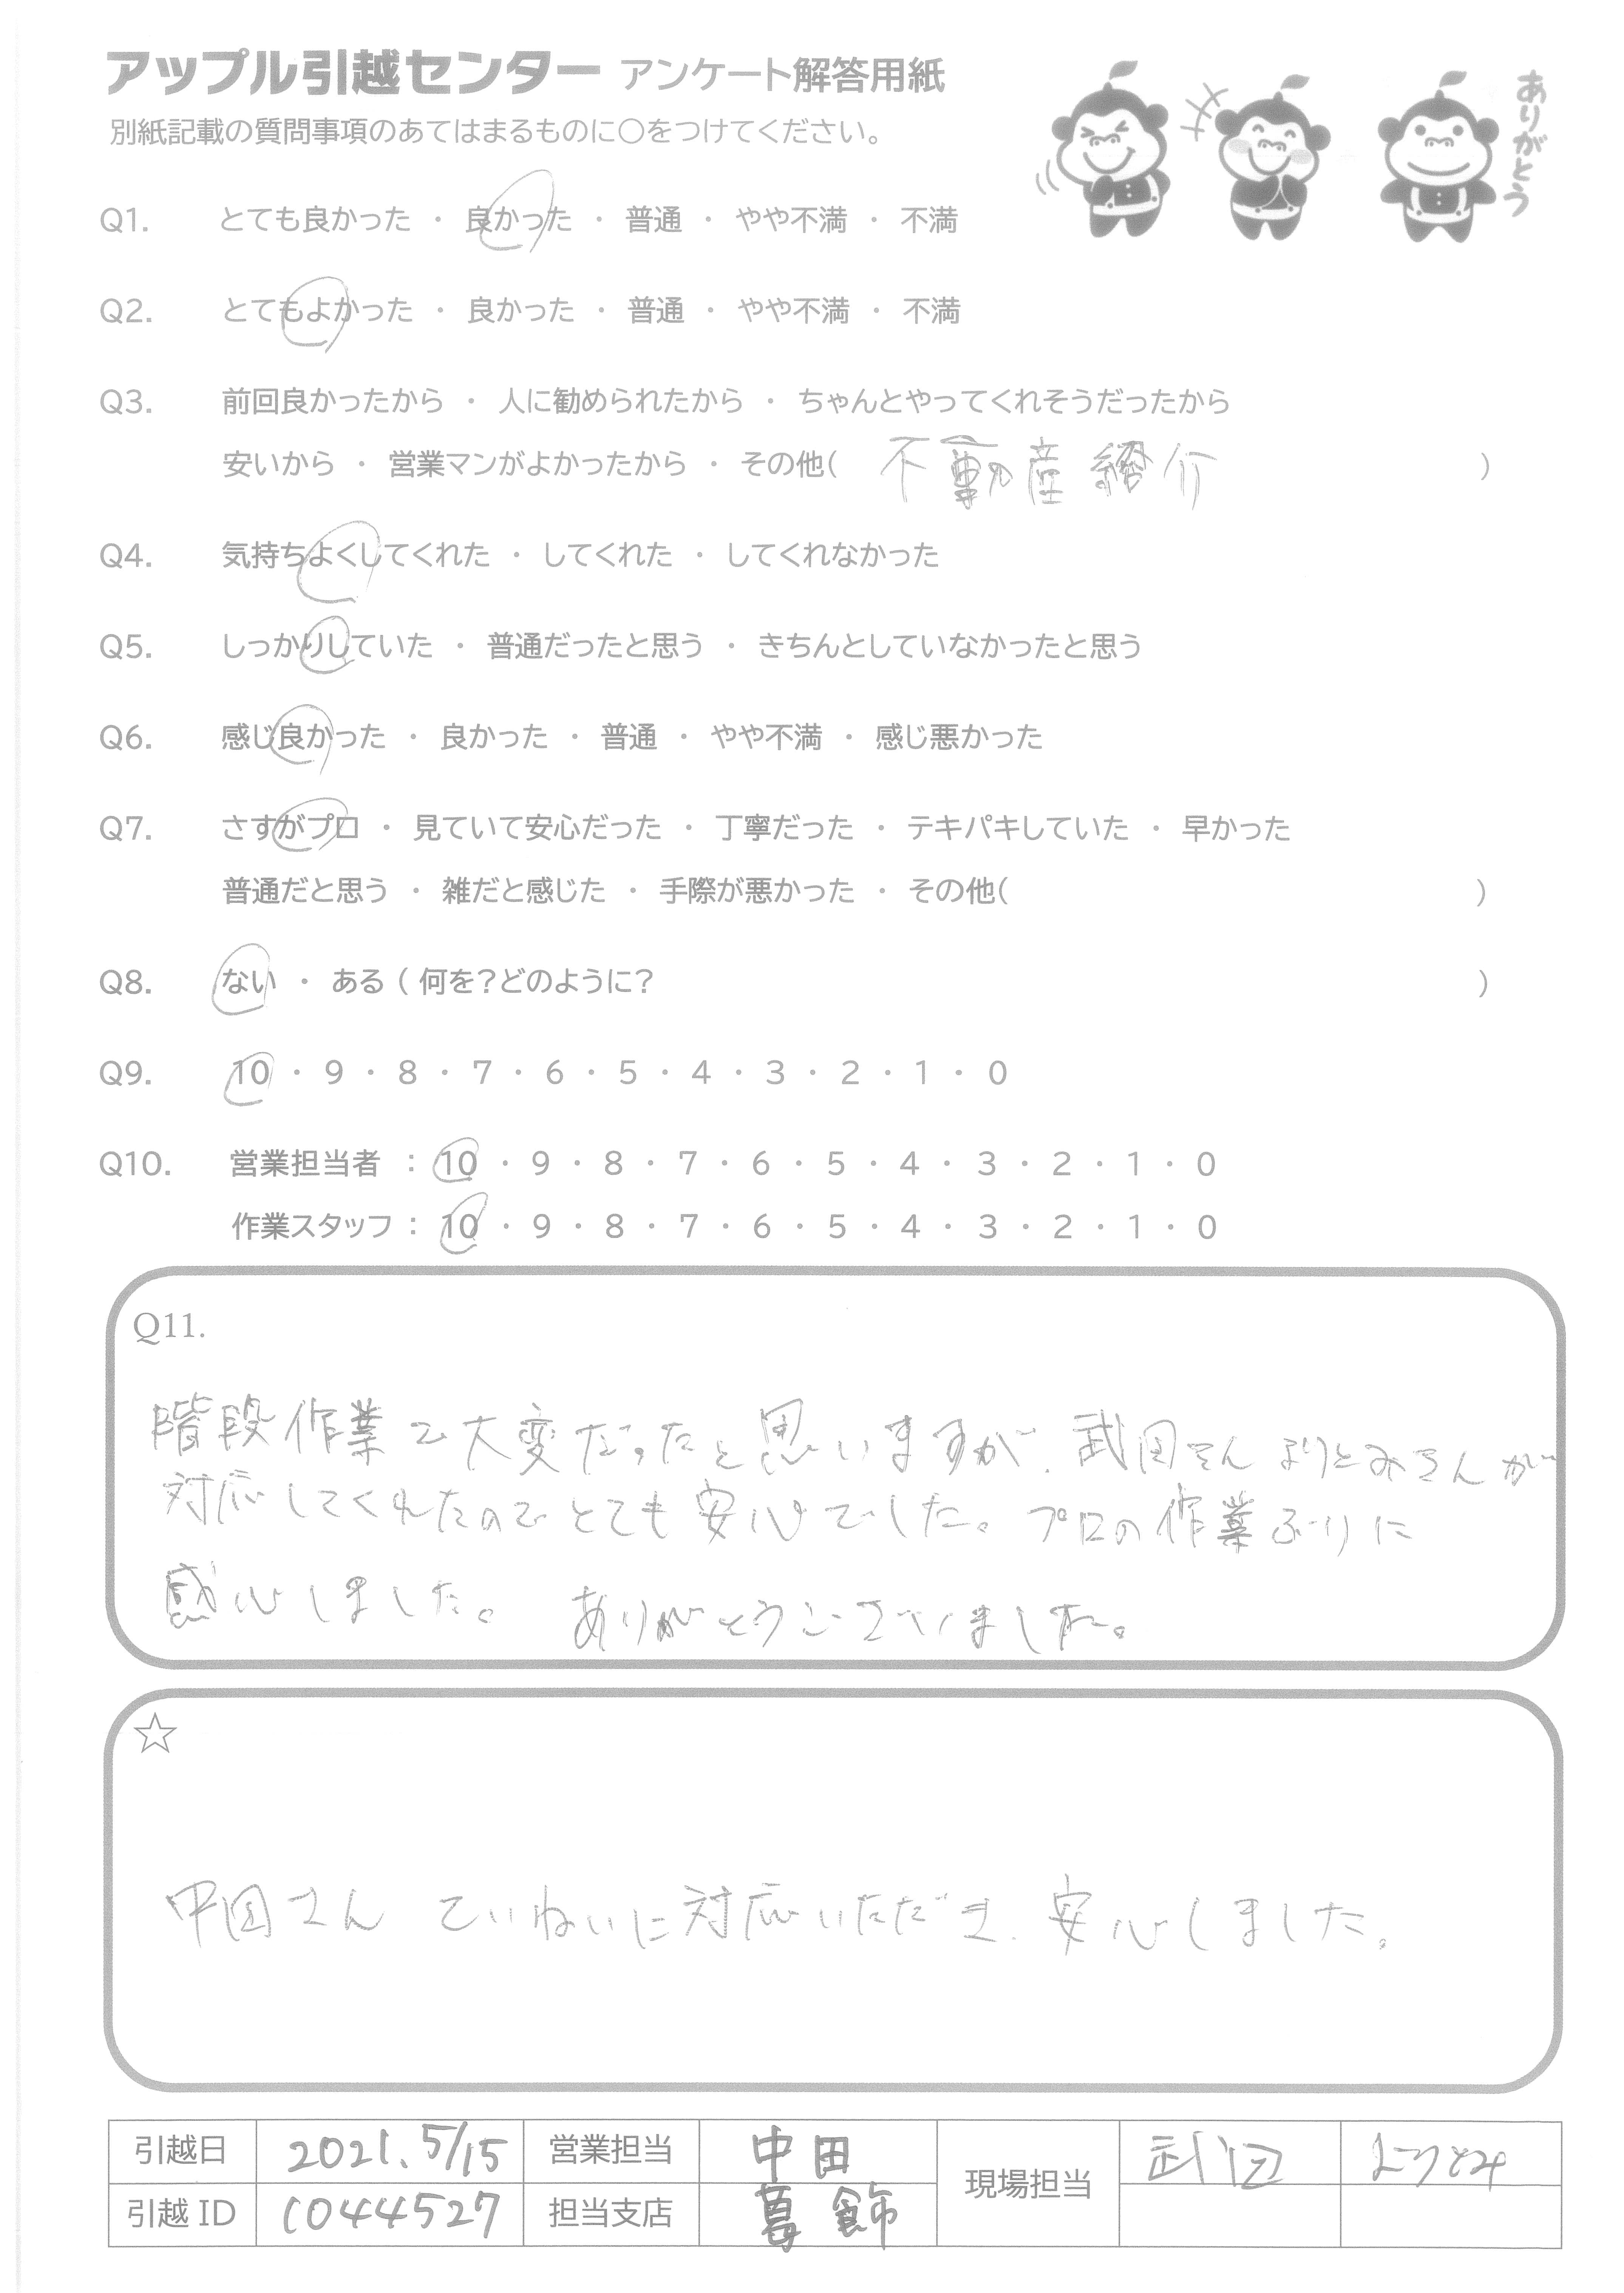 アップル引越センター アンケート解答用紙
ありがとう
別紙記載の質問事項のあてはまるものに○をつけてください。
Q1. とても良かった ・ 良かった ・ 普通 ・ やや不満 ・ 不満
Q2. とてもよかった ・ 良かった ・ 普通 ・ やや不満 ・ 不満
Q3. 前回良かったから ・ 人に勧められたから ・ ちゃんとやってくれそうだったから
安いから ・ 営業マンがよかったから ・ その他( 不動産紹介 )
Q4. 気持ちよくしてくれた ・ してくれた ・ してくれなかった
Q5. しっかりしていた ・ 普通だったと思う ・ きちんとしていなかったと思う
Q6. 感じ良かった ・ 良かった ・ 普通 ・ やや不満 ・ 感じ悪かった
Q7. さすがプロ ・ 見ていて安心だった ・ 丁寧だった ・ テキパキしていた ・ 早かった
普通だと思う ・ 雑だと感じた ・ 手際が悪かった ・ その他( )
Q8. ない ・ ある ( 何を?どのように? )
Q9. 10 ・ 9 ・ 8 ・ 7 ・ 6 ・ 5 ・ 4 ・ 3 ・ 2 ・ 1 ・ 0
Q10. 営業担当者 : 10 ・ 9 ・ 8 ・ 7 ・ 6 ・ 5 ・ 4 ・ 3 ・ 2 ・ 1 ・ 0
作業スタッフ : 10 ・ 9 ・ 8 ・ 7 ・ 6 ・ 5 ・ 4 ・ 3 ・ 2 ・ 1 ・ 0
Q11.
階段作業で大変だったと思いますが、武田さん よりとみさんが
対応してくれたので とても 安心でした。プロの作業ぶりに
感心しました。 ありがとうございました。
☆
中田さん ていねいに対応いただき、安心しました。
引越日 2021.5/15 営業担当 中田 現場担当 武田 よりとみ
引越ID 1044527 担当支店 葛飾